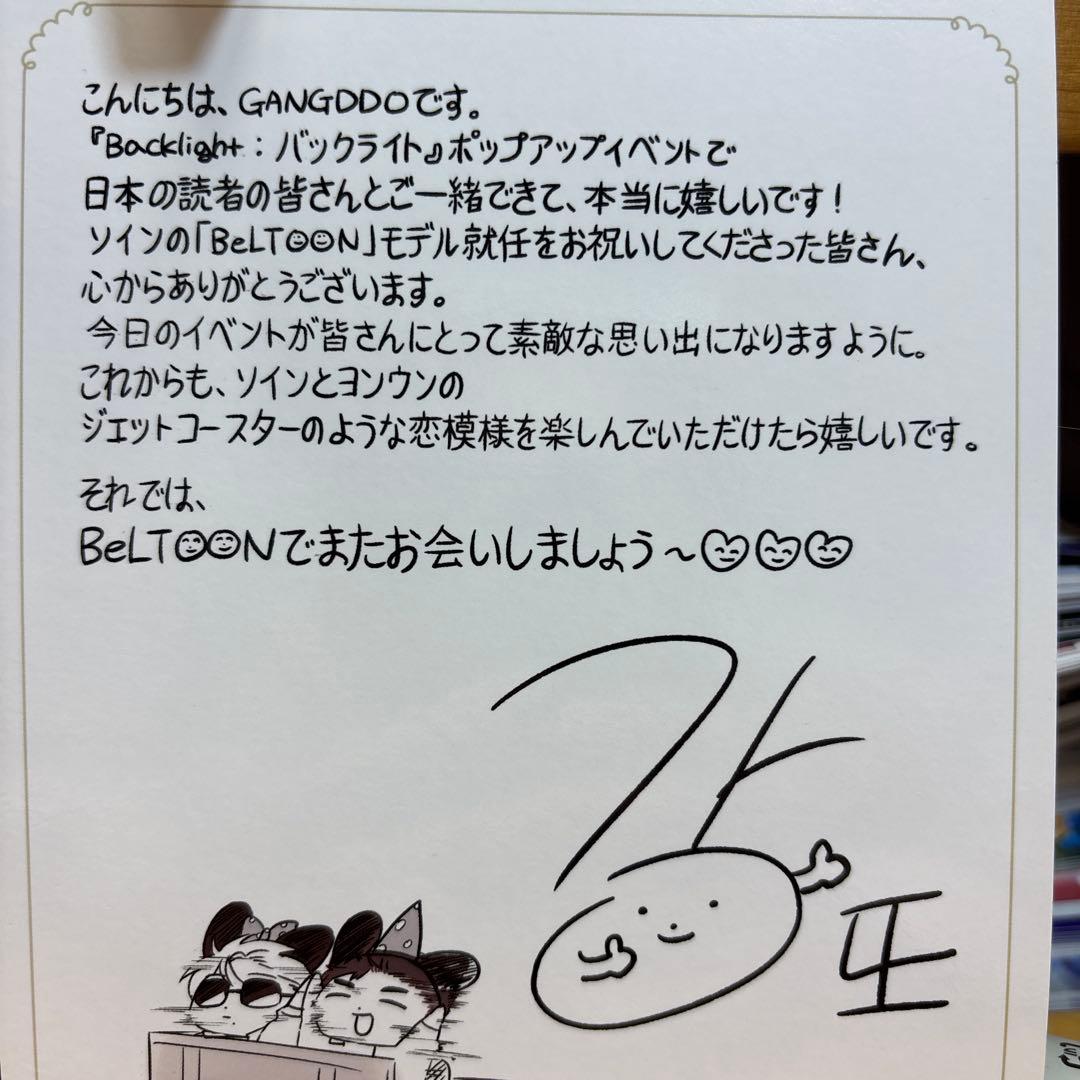 こんにちは、GANGDDOです。
『Backlight：バックライト』ポップアップイベントで
日本の読者の皆さんとご一緒できて、本当に嬉しいです！
ソインの「BeLTOON」モデル就任をお祝いしてくださった皆さん、
心からありがとうございます。
今日のイベントが皆さんにとって素敵な思い出になりますように。
これからも、ソインとヨンウンの
ジェットコースターのような恋模様を楽しんでいただけたら嬉しいです。
それでは、
BeLTOONでまたお会いしましょう～
강또